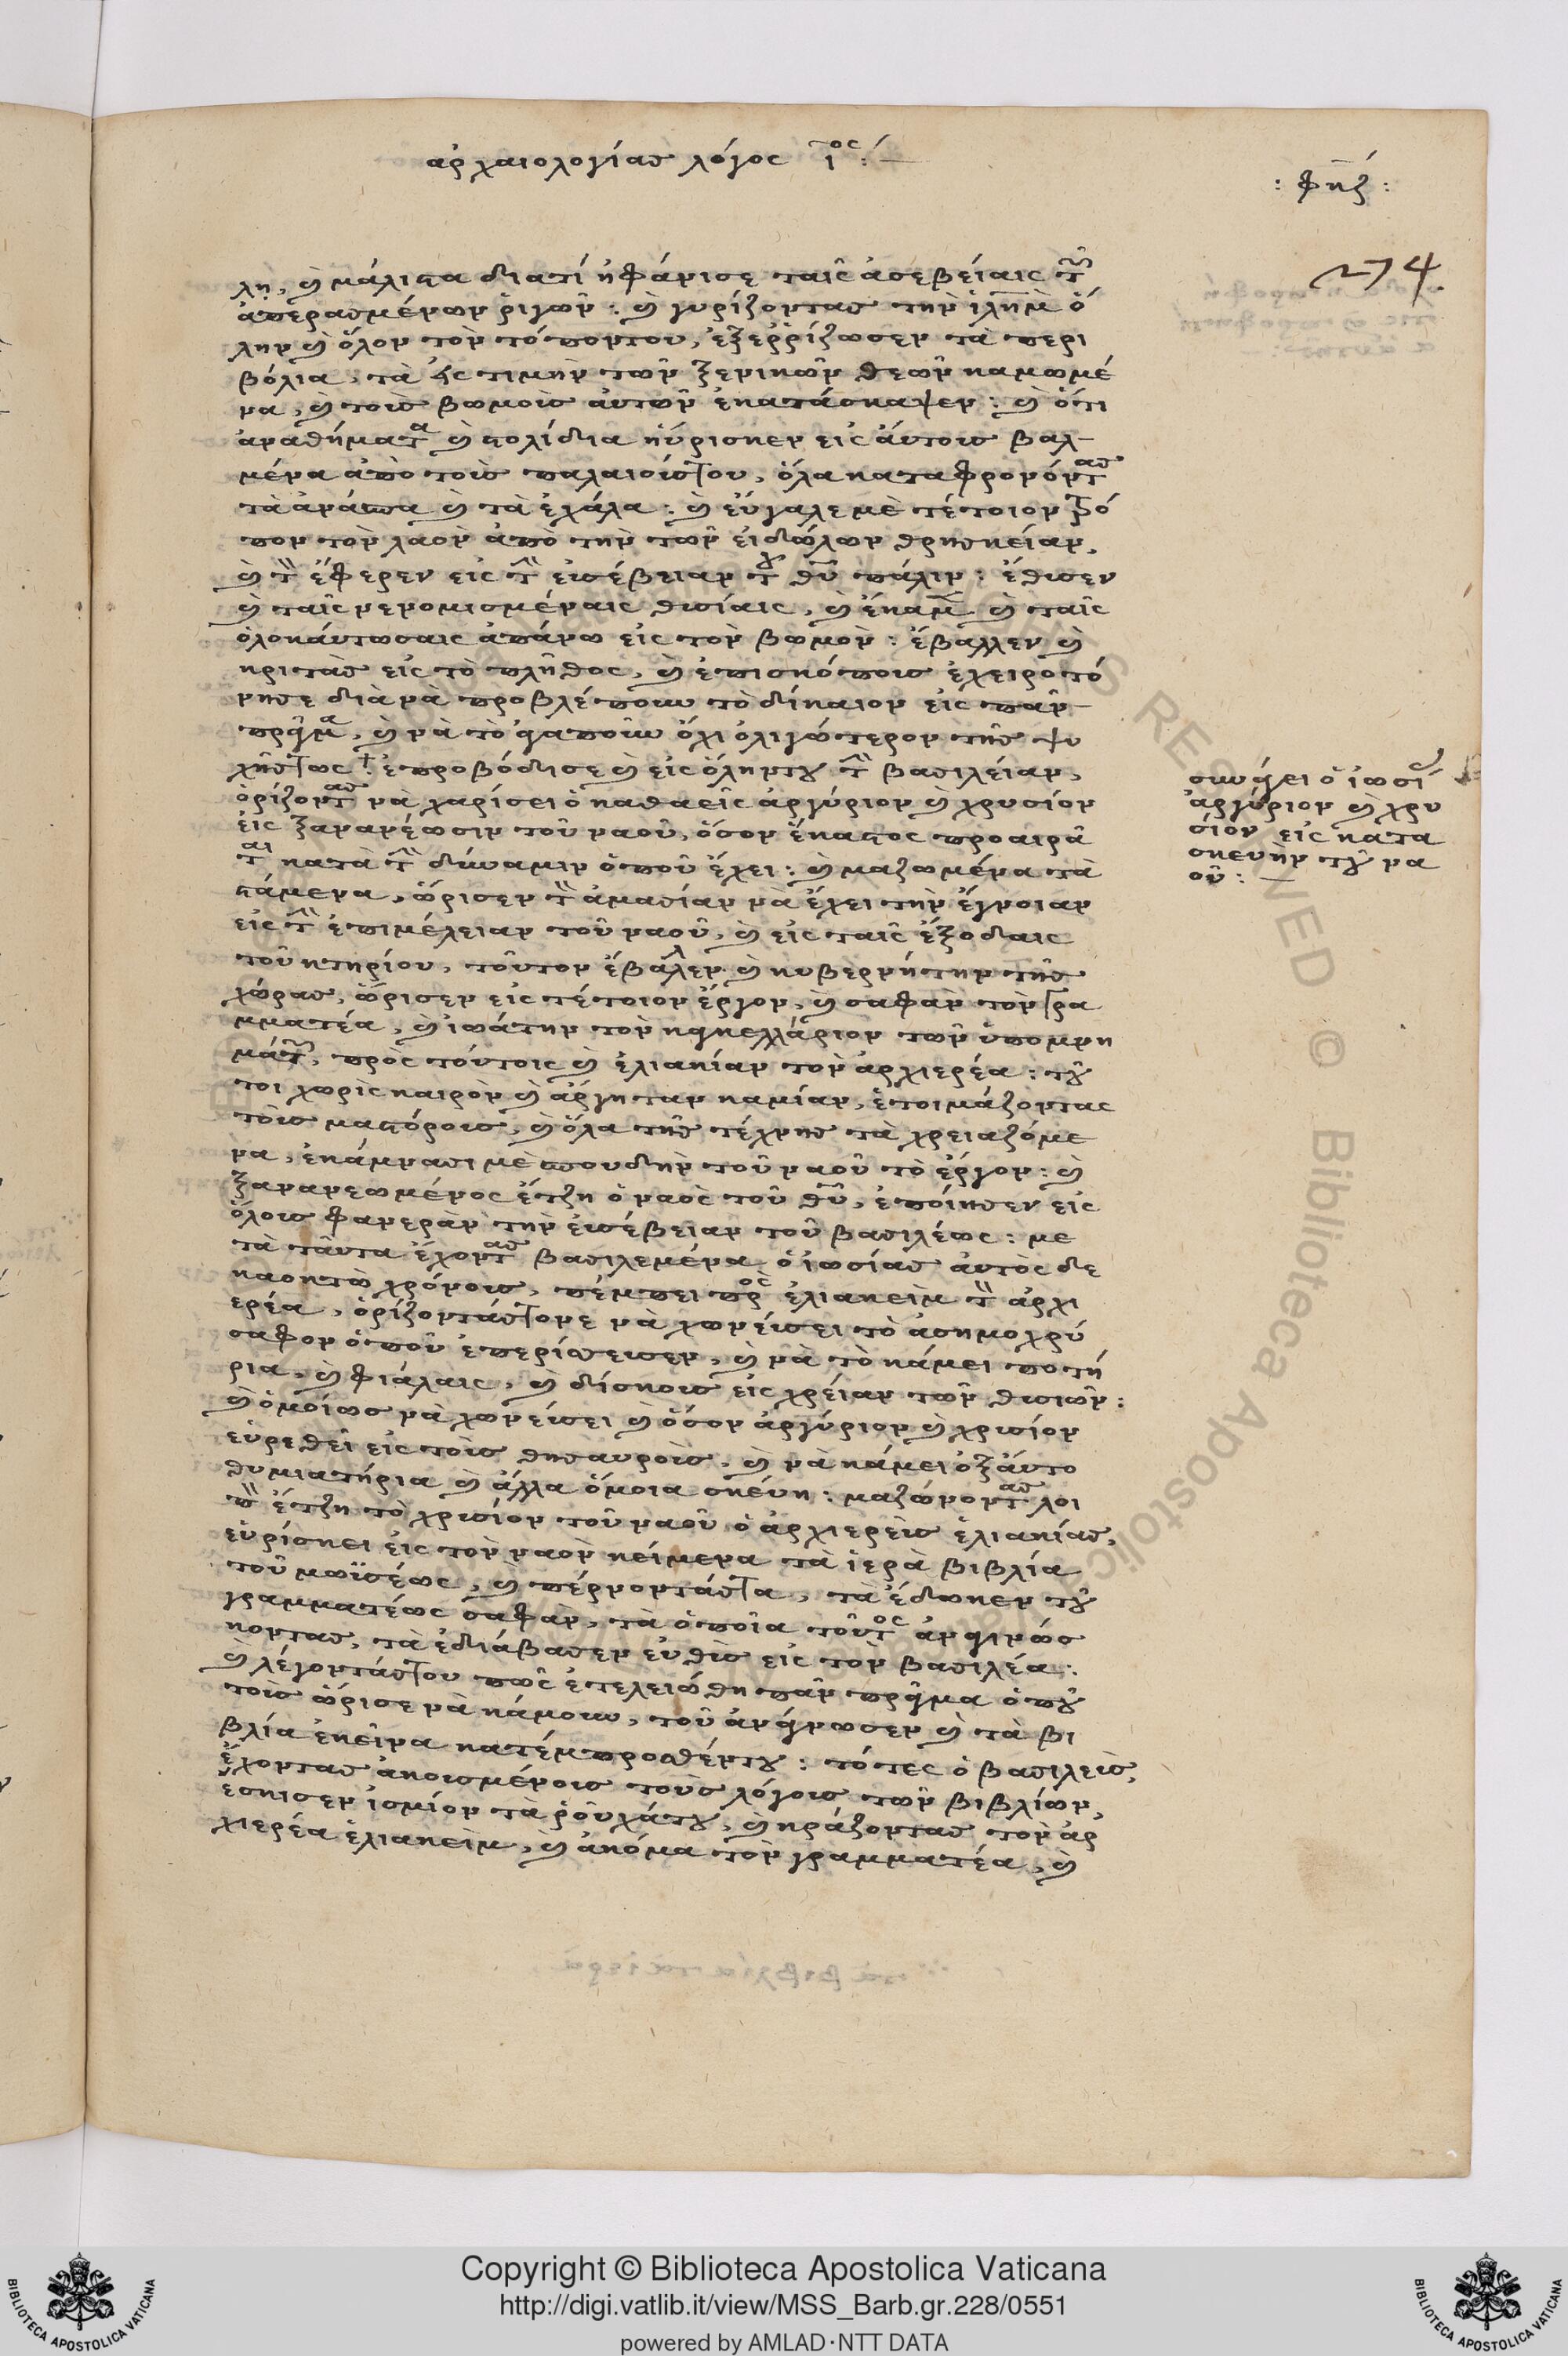 ἀρχαιολογίας λόγος ι^ος :—
: φηζ :
274
λη, καὶ μάλιστα διατί ἠφάνισε ταῖς ἀσεβείαις τῶν
ἀπερασμένων ῥιγῶν : καὶ γυρίζοντας τὴν ἱλημ ὅ
λην καὶ ὅλον τὸν τόπον του, ἐξερρίζωσεν τὰ περι
βόλια, τὰ εἰς τιμὴν τῶν ξενικῶν θεῶν καμωμέ
να, καὶ τοὺς βωμοὺς αὐτῶν ἐκατάσκαψεν : καὶ ὅτι
ἀναθήματα καὶ στολίδια ηὕρισκεν εἰς αὐτοὺς βαλ-
μένα ἀπὸ τοὺς παλαιούς του, ὅλα καταφρονόντας
τὰ ἀνάσπα καὶ τὰ ἐχάλα : καὶ εὔγαλε μὲ τέτοιον τρό
πον τὸν λαὸν ἀπὸ τὴν τῶν εἰδώλων θρησκείαν,
καὶ τὸν ἔφερεν εἰς τὴν εὐσέβειαν τοῦ θυ πάλιν : ἔθυσεν
καὶ ταῖς νενομισμέναις θυσίαις, καὶ ἔκαμεν καὶ ταῖς
ὁλοκαύτωσαις ἀπάνω εἰς τὸν βωμὸν : ἔβαλλεν καὶ
κριτὰς εἰς τὸ πλῆθος, καὶ ἐπισκόπους ἐχειροτό
νησε διὰ νὰ προβλέπουν τὸ δίκαιον εἰς πᾶν-
πρᾶγμα, καὶ νὰ τὸ ἀγαποῦν ὄχι ὀλιγώτερον τῆς ψυ
χῆς τως : ἐπροβόδισε καὶ εἰς ὅλην του τὴν βασιλείαν,
ὁρίζοντας νὰ χαρίσει ὁ καθαεῖς ἀργύριον καὶ χρυσίον
εἰς ξανανέωσιν τοῦ ναοῦ, ὅσον ἕκαστος προαιρᾶ
ται κατὰ τὴν δύναμιν ὁποῦ ἔχει : καὶ μαζωμένα τὰ
στάμενα, ὥρισεν τὸν ἀμασίαν νὰ ἔχει τὴν ἔγνοιαν
εἰς τὴν ἐπιμέλειαν τοῦ ναοῦ, καὶ εἰς ταῖς ἐξόδαις
τοῦ κτηρίου, τοῦτον ἔβαλεν καὶ κυβερνήτην τῆς
χώρας, ὥρισεν εἰς τέτοιον ἔργον, καὶ σαφὰν τὸν γρα
μματέα, καὶ ἰωάτην τὸν καγκελλάριον τῶν ὑπομνη
μάτων, πρὸς τούτοις καὶ ἐλιακίαν τὸν ἀρχιερέα : τοῦ
τοι χωρὶς καιρὸν καὶ ἄργηταν καμίαν, ἑτοιμάζοντας
τοὺς μαστόρους, καὶ ὅλα τῆς τέχνης τὰ χρειαζόμε
να, ἐκάμνασι μὲ σπουδὴν τοῦ ναοῦ τὸ ἔργον : καὶ
ξανανεωμένος ἔτζη ὁ ναὸς τοῦ θυ, ἐποίησεν εἰς
ὅλους φανερὰν τὴν εὐσέβειαν τοῦ βασιλέως : με
τὰ ταῦτα ἔχοντας βασιλεμένα ὁ ἰωσίας αὐτὸς δε
καοκτὼ χρόνους, πέμπει πρὸς ἐλιακεὶμ τὸν ἀρχι
ερέα, ὁρίζοντάς τονε νὰ χωνεύσει τὸ ἀσημοχρύ
σαφον ὁποῦ ἐπερίσσευσεν, καὶ νὰ τὸ κάμει ποτή
ρια, καὶ φιάλαις, καὶ δίσκους εἰς χρείαν τῶν θυσιῶν :
καὶ ὁμοίως νὰ χωνεύσει καὶ ὅσον ἀργύριον καὶ χρυσίον
εὑρεθεῖ εἰς τοὺς θησαυροὺς, καὶ νὰ κάμει ὀξ αὐτο
θυμιατήρια καὶ ἄλλα ὅμοια σκεύη : μαζώνοντας λοι
πὸν ἔτζη τὸ χρυσίον τοῦ ναοῦ ὁ ἀρχιερεὺς ἐλιακίας,
εὑρίσκει εἰς τὸν ναὸν κείμενα τὰ ἱερὰ βιβλία
τοῦ μωϋσέως, καὶ πέρνοντάς τα, τὰ ἔδωκεν τοῦ
γραμματέως σαφὰν, τὰ ὁποῖα τοῦτος ἀναγινώσ
κοντας, τὰ ἐδιάβασεν εὐθὺς εἰς τὸν βασιλέα :
καὶ λέγοντάς του πῶς ἐτελειώθη πᾶν πρᾶγμα ὁποῦ
τοὺς ὥρισε νὰ κάμουν, τοῦ ἀνάγνωσεν καὶ τὰ βι
βλία ἐκεῖνα κατέμπροσθέν του : τότες ὁ βασιλεὺς,
ἔχοντας ἀκουσμένους τοὺς λόγους τῶν βιβλίων,
ἔσκισεν ἰσμίον τὰ ῥοῦχά του, καὶ κράζοντας τὸν ἀρ
χιερέα ἐλιακεὶμ, καὶ ἀκόμα τὸν γραμματέα, καὶ
συνάγει ὁ ἰωσί
ἀργύριον καὶ χρυ
σίον εἰς κατα
σκευὴν τοῦ να
οῦ :—
Copyright © Biblioteca Apostolica Vaticana
http://digi.vatlib.it/view/MSS_Barb.gr.228/0551
powered by AMLAD·NTT DATA
BIBLIOTECA APOSTOLICA VATICANA
BIBLIOTECA APOSTOLICA VATICANA